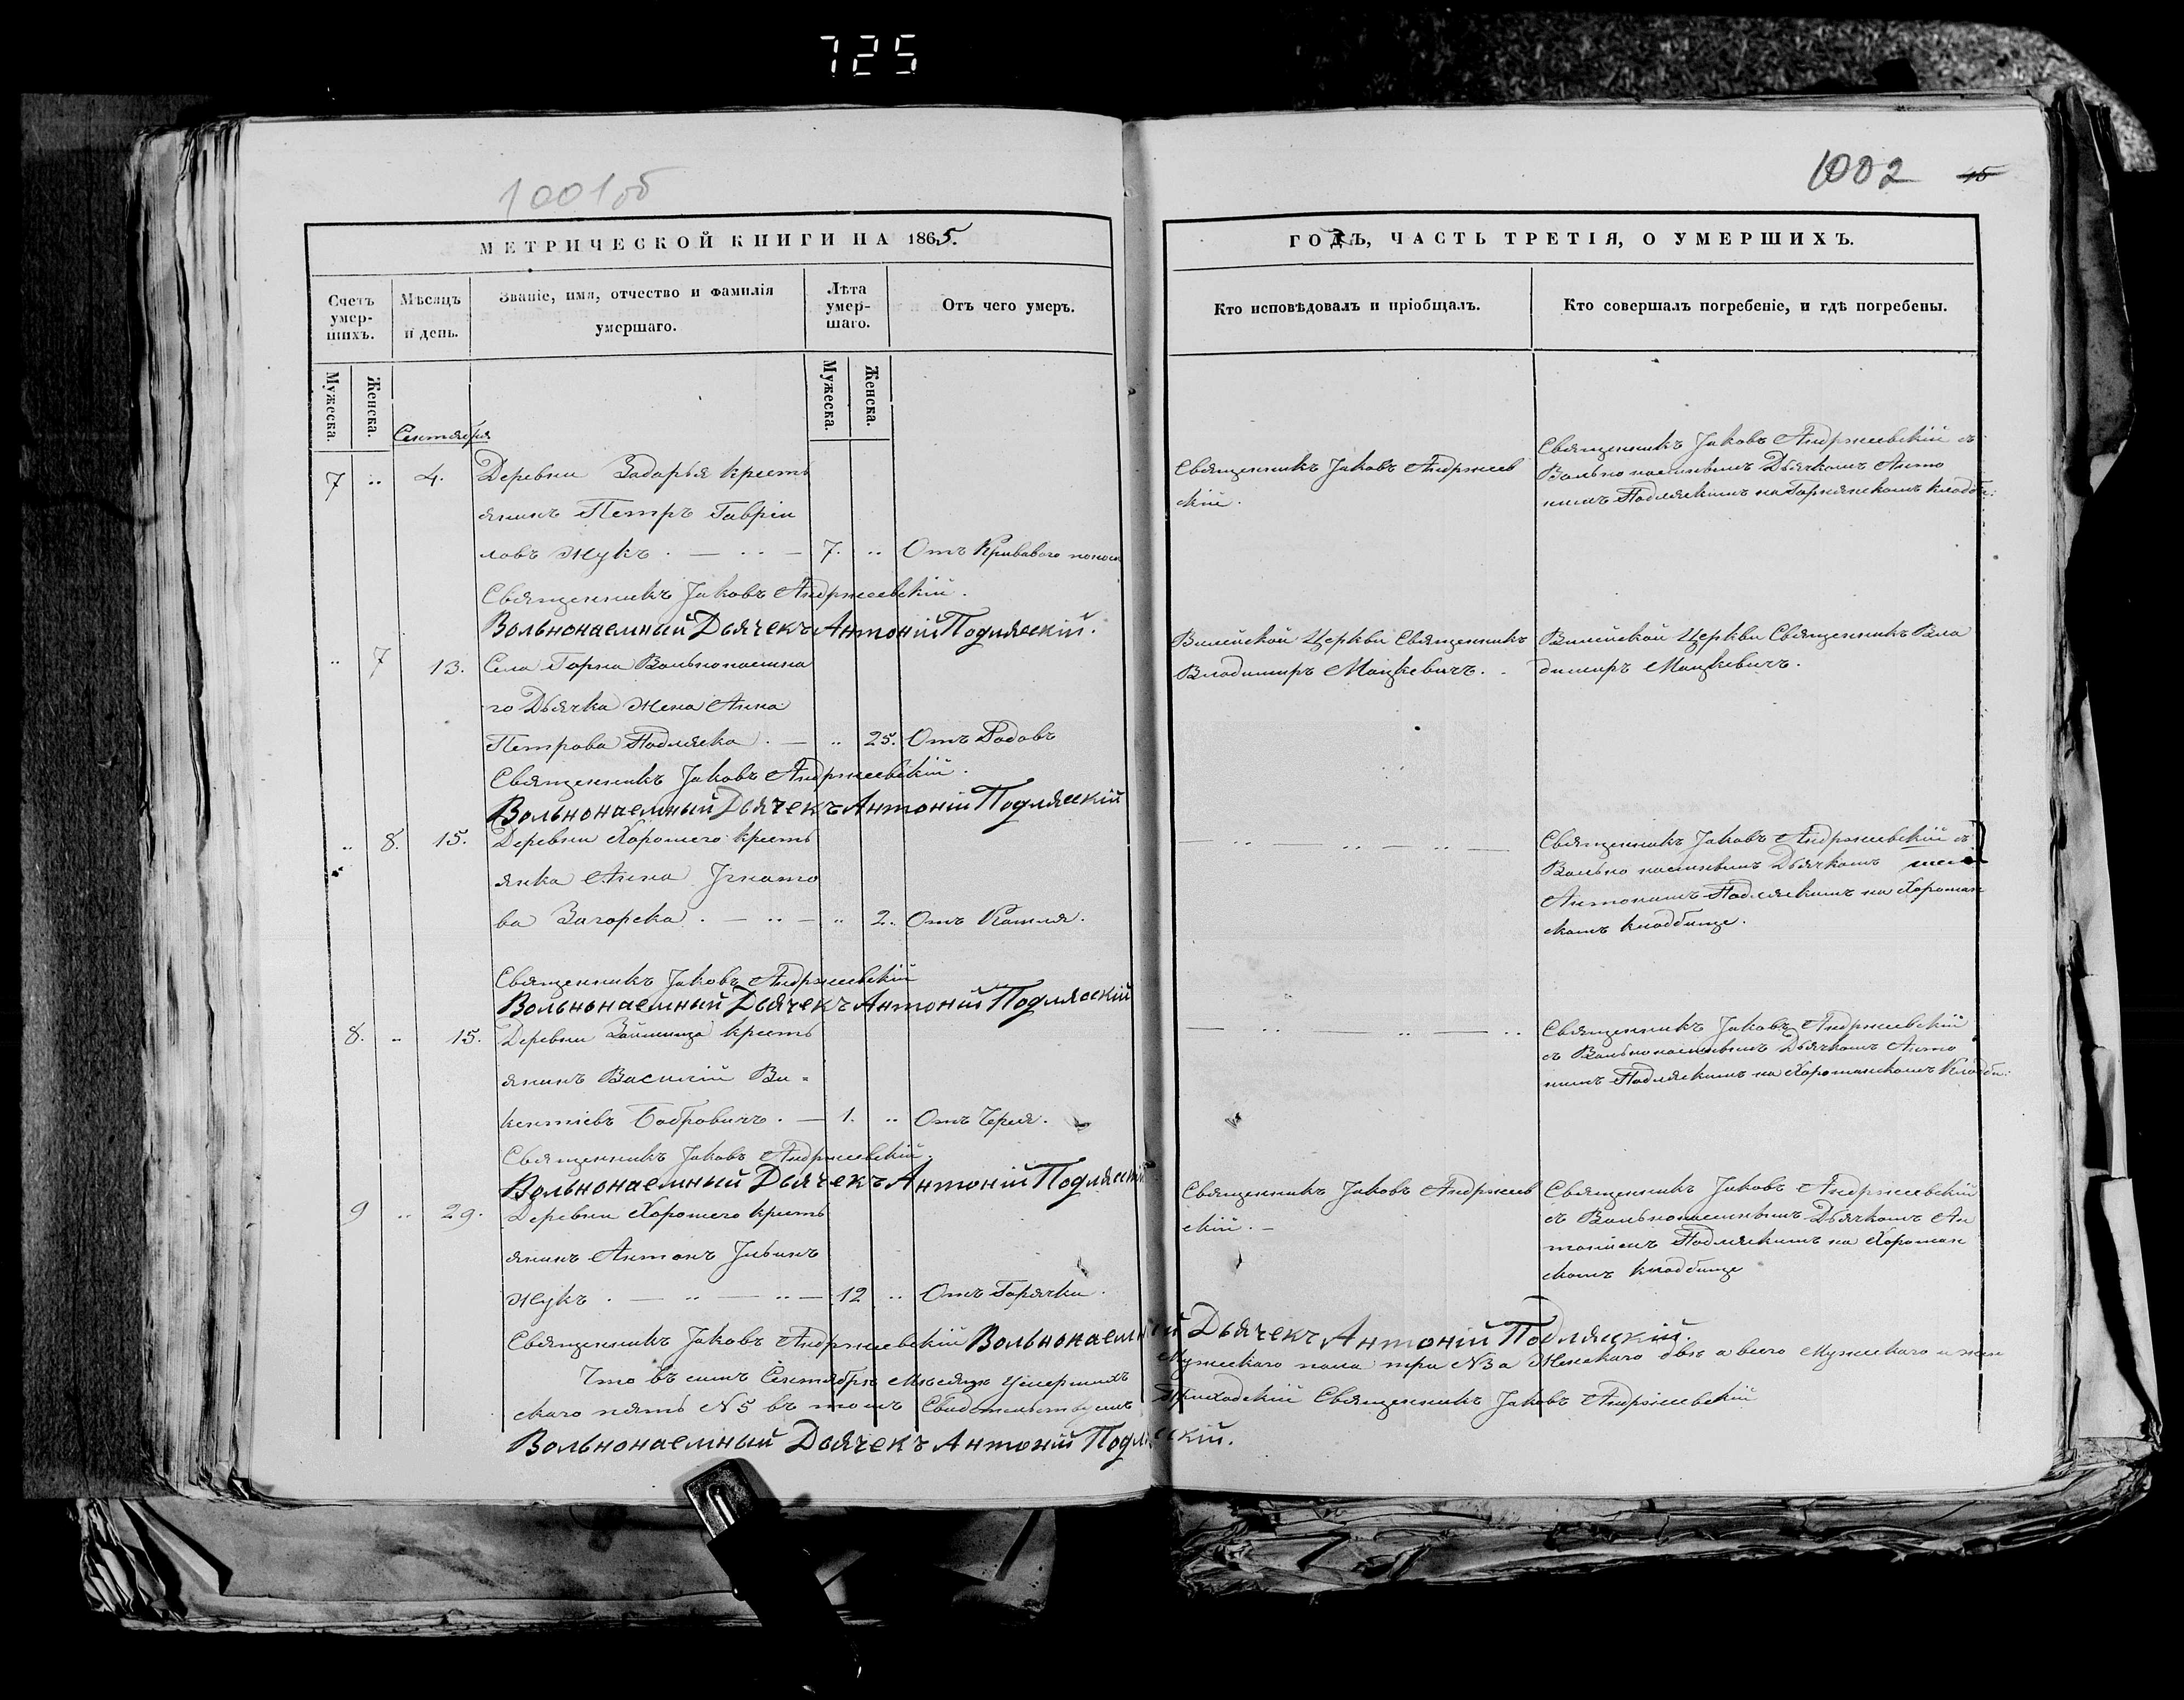 725
1001об
1002
15
МЕТРИЧЕСКОЙ КНИГИ НА 1865.
ГОДЪ, ЧАСТЬ ТРЕТІЯ, О УМЕРШИХЪ.
Счетъ умер-шихъ.
Мѣсяцъ и день.
Званіе, имя, отчество и фамилія умершаго.
Лѣта умер-шаго.
Отъ чего умеръ.
Кто исповѣдовалъ и пріобщалъ.
Кто совершалъ погребеніе, и гдѣ погребены.
Мужеска.
Женска.
Мужеска.
Женска.
Сентября
7 .. 4. Деревни Задарья кресть
янинъ Петръ Гавріи
ловъ Жукъ . — .. — 7. .. Отъ Криваваго поноса
Священникъ Іаковъ Андржеев
скій.
Священникъ Іаковъ Андржеевскій съ
Вольнонаемнымъ Дьячкомъ Анто
ніемъ Подляскимъ на Горнянскомъ кладби:
Священникъ Іаковъ Андржеевскій.
Вольнонаемный Дьячекъ Антоній Подляскій.
.. 7 13. Села Горна Вольнонаемна
го Дьячка жена Анна
Петрова Подляска . — .. 25. Отъ Родовъ
Вилейской Церкви Священникъ
Владимиръ Мацкевичъ. .
Вилейской Церкви Священникъ Вла
димиръ Мацкевичъ.
Священникъ Іаковъ Андржеевскій.
Вольнонаемный Дьячекъ Антоній Подляскій
.. 8. 15. Деревни Хорошего кресть
янка Анна Игнато
ва Загорска . — .. — .. 2. Отъ Кашля.
— .. — .. — .. —
Священникъ Іаковъ Андржеевскій съ
Вольнонаемнымъ Дьячкомъ
Антоніемъ Подляскимъ на Хорошан
скомъ кладбище.
Священникъ Іаковъ Андржеевскій
Вольнонаемный Дьячекъ Антоній Подляскій
8. .. 15. Деревни кресть
янинъ Василій Ви-
кентіевъ Бобровичъ. — 1. .. Отъ Черея.
— .. .. — — ..
Священникъ Іаковъ Андржеевскій
съ Вольнонаемнымъ Дьячкомъ Анто
ніемъ Подляскимъ на Хорошанскомъ Кладби:
Священникъ Іаковъ Андржеевскій.
Вольнонаемный Дьячекъ Антоній Подляскій
9 .. 29. Деревни Хорошего кресть
янинъ Антонъ Ильинъ
Жукъ . — .. — .. — 12 .. Отъ Горячки.
Священникъ Іаковъ Андржеев
скій. —
Священникъ Іаковъ Андржеевскій
съ Вольнонаемнымъ Дьячкомъ Ан
тоніемъ Подляскимъ на Хорошан
скомъ кладбище
Священникъ Іаковъ Андржеевскій Вольнонаемный Дьячекъ Антоній Подляскій.
Что въ семъ Сентябрѣ мѣсяцѣ умершихъ Мужескаго пола три №3 а Женскаго двѣ а всего Мужескаго и жен
скаго пять №5 въ томъ Свидетельствуемъ Приходскій Священникъ Іаковъ Андржеевскій
Вольнонаемный Дьячекъ Антоній Подляскій.